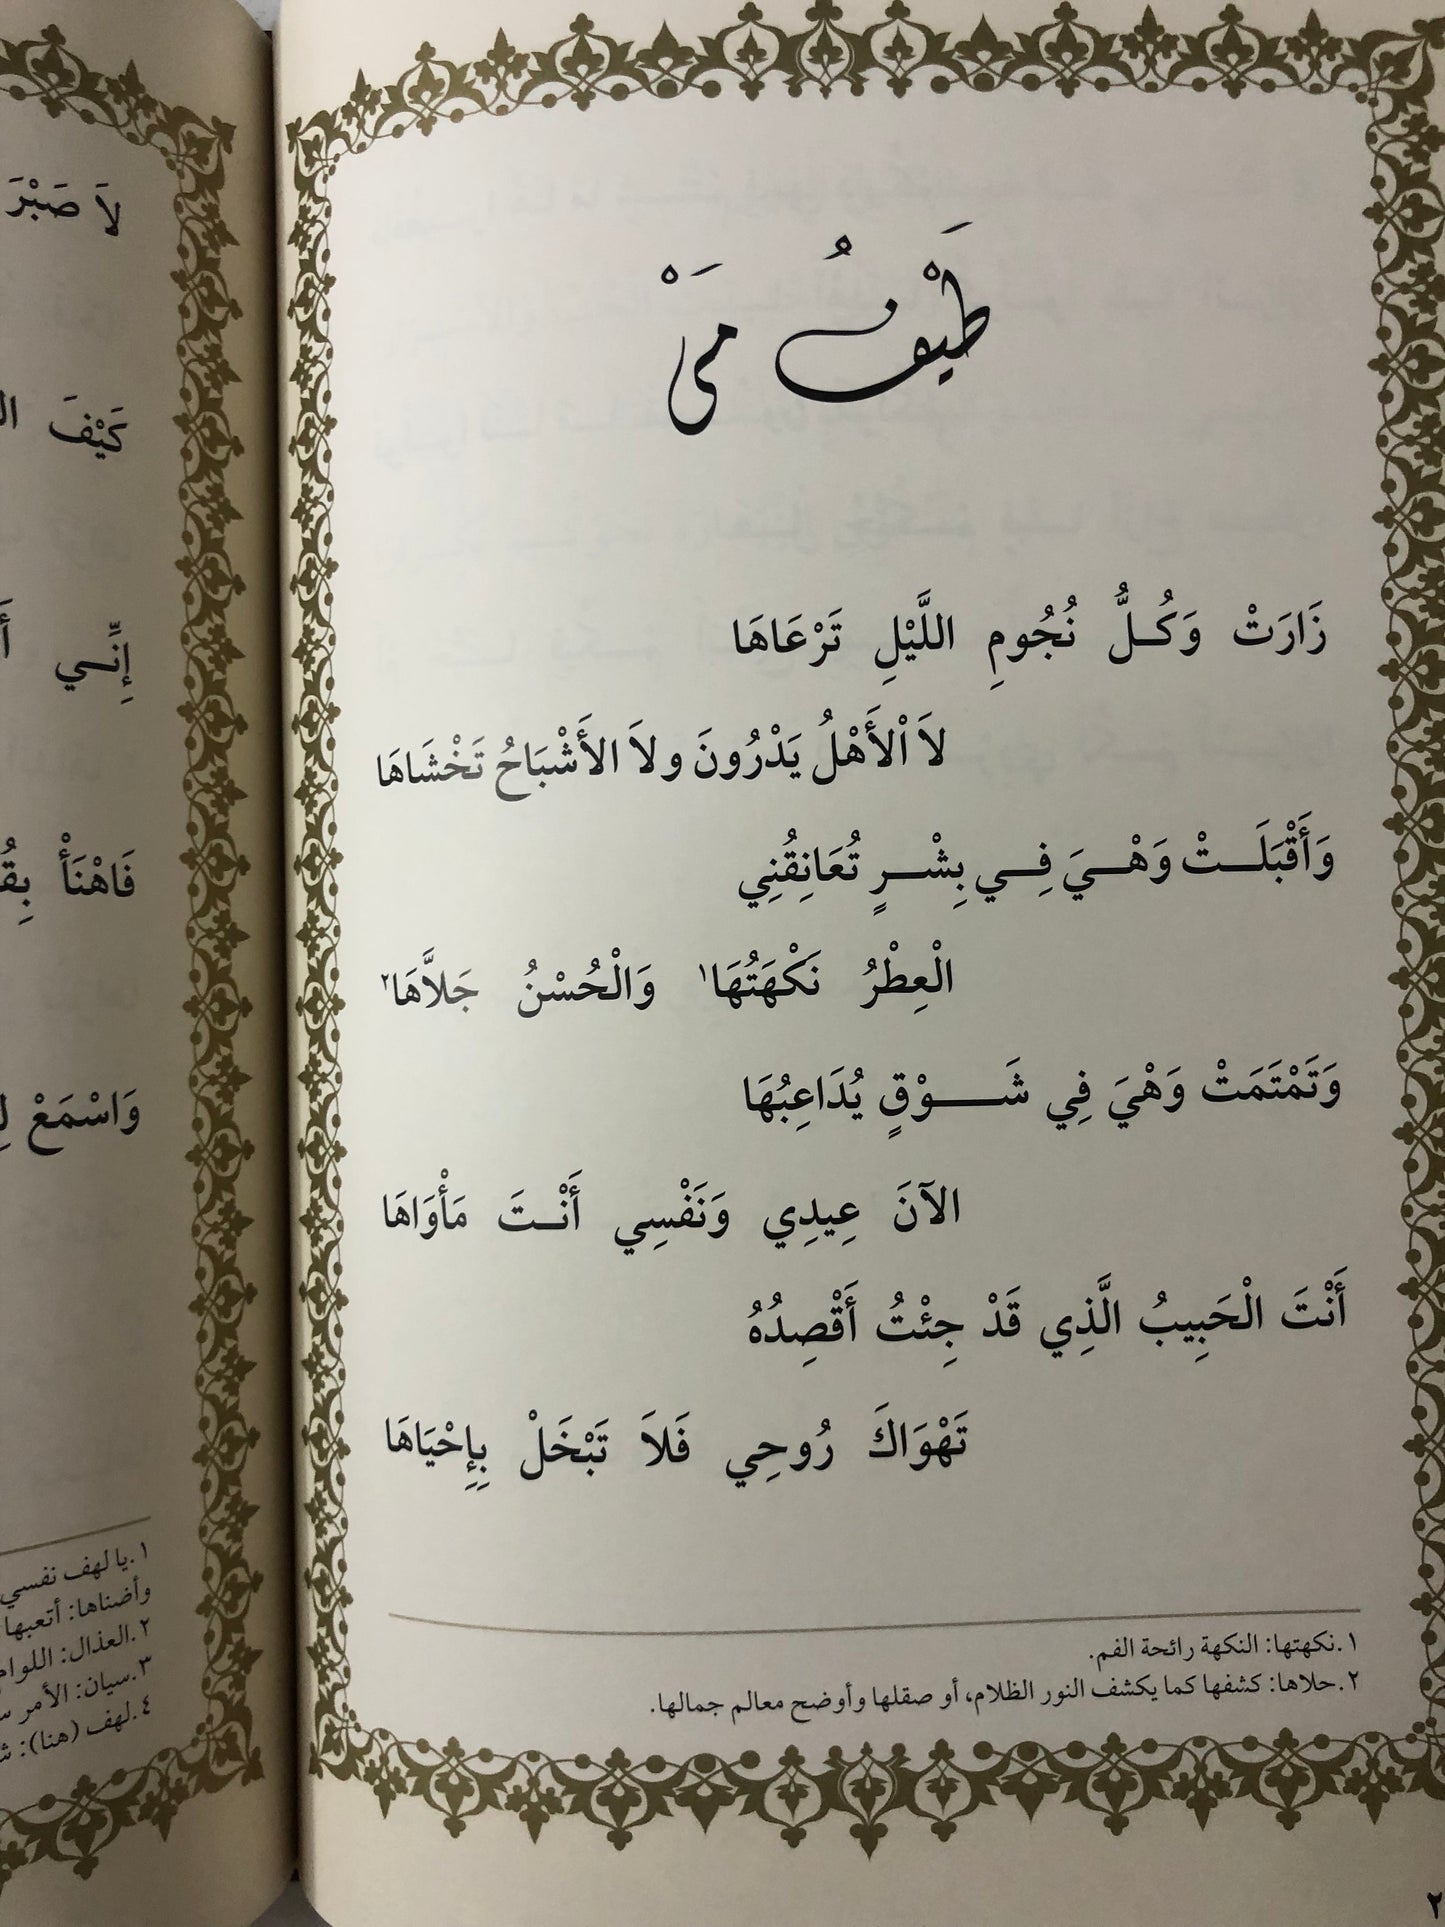 طَيْفُ مَيْ
زَارَتْ وَكُـلُّ نُجُومِ اللَّيْلِ تَرْعَاهَا
لاَ اْلأَهْلُ يَدْرُونَ ولاَ الأَشْبَاحُ تَخْشَاهَا
وَأَقْبَلَـــتْ وَهْـــيَ فِـــي بِشْـــرٍ تُعَانِقُنِي
الْعِطْرُ نَكْهَتُهَا١ وَالْحُسْنُ جَلاَّهَا٢
وَتَمْتَمَتْ وَهْيَ فِي شَـــــوْقٍ يُدَاعِبُهَا
الآنَ عِيدِي وَنَفْسِي أَنْـــتَ مَأْوَاهَا
أَنْتَ الْحَبِيبُ الَّذِي قَدْ جِئْتُ أَقْصِدُهُ
تَهْوَاكَ رُوحِي فَلاَ تَبْخَلْ بِإِحْيَاهَا
١.نكهتها: النكهة رائحة الفم.
٢.حلاها: كشفها كما يكشف النور الظلام، أو صقلها وأوضح معالم جمالها.
٢
لاَ صَبْرَ
كَيْفَ
إِنِّـــي
فَاهْنَأْ
وَاسْمَعْ
١.يا لهف نفسي
وأضناها: أتعبها
٢.العذال: اللوام
٣.سيان: الأمر
٤.لهف (هنا):